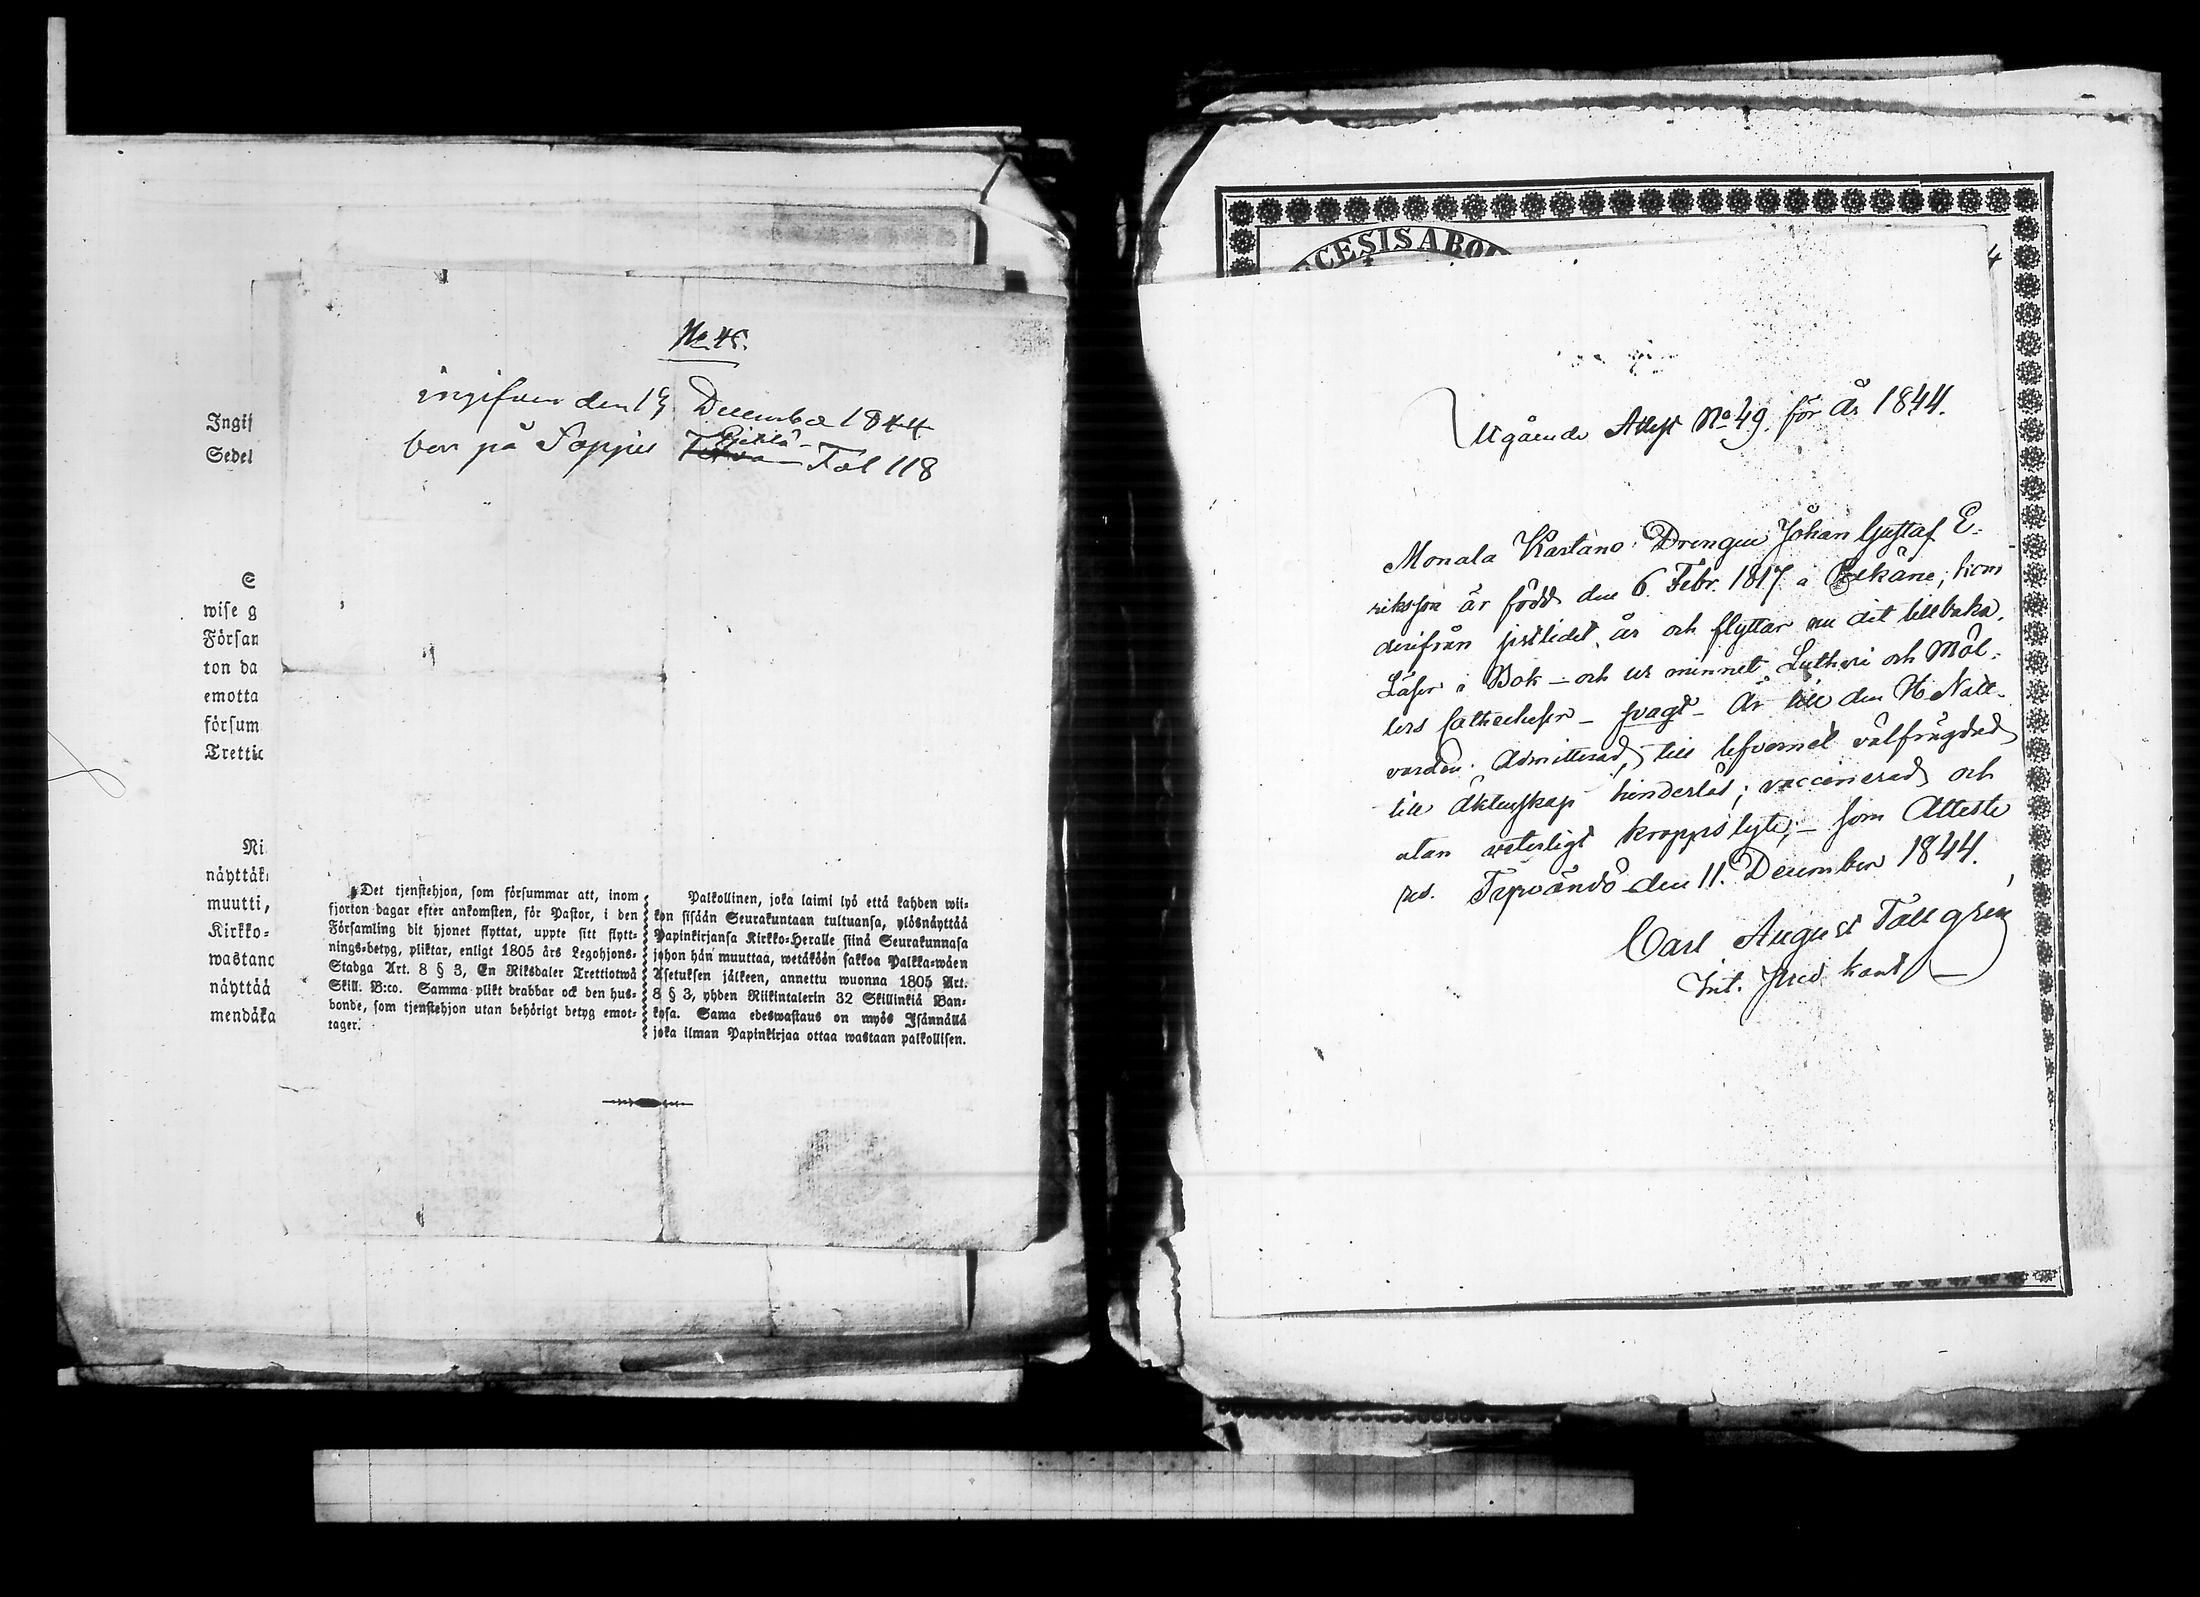 No 45.
ingifven den 15 December 1844
bor på Soppis Pjettilä – Fol 118
Ingif
Sedel
S
wise g
Försan
ton da
emotta
försum
Trettio
Ni
näyttäk
muutti,
Kirkko-
wastano
näyttää
mendäka
Det tjenstehjon, som försummar att, inom
fjorton dagar efter ankomsten, för Pastor, i den
Församling dit hjonet flyttat, uppte sitt flytt-
nings-betyg, pliktar, enligt 1805 års Legohjons-
Stadga Art. 8 § 3, En Riksdaler Trettiotwå
Skill. B:co. Samma plikt drabbar ock den hus-
bonde, som tjenstehjon utan behörigt betyg emot-
tager.
Palkollinen, joka laimi lyö että kahden wii-
kon sisään Seurakuntaan tultuansa, ylösnäyttää
Papinkirjansa Kirkko-Heralle siinä Seurakunnasa
johon hän muuttaa, wetäköön sakkoa Palkka-wäen
Asetuksen jälkeen, annettu wuonna 1805 Art.
8 § 3, yhden Riikintalerin 32 Skillinkiä Ban-
kosa. Sama edeswastaus on myös Isännällä
joka ilman Papinkirjaa ottaa wastaan palkollisen.
CESIS ABO
4
Utgående Attest No 49. för År 1844.
Monala Kartano Drengen Johan Gustaf E-
riksson är född den 6. Febr. 1817 i Pelkäne, kom
derifrån sistlidet år och flyttar nu dit tillbaka.
Läser i Bok – och ur minnet Lutheri och Möl-
lers Catecheser – svagt – Är till den H. Natt-
varden admitterad, till lefvernet välfrägdad
till äktenskap hinderlös; vaccinerad och
utan veterligt kroppslyte; – som Atteste
ras. Tyrvändö den 11. December 1844.
Carl August Tallgren